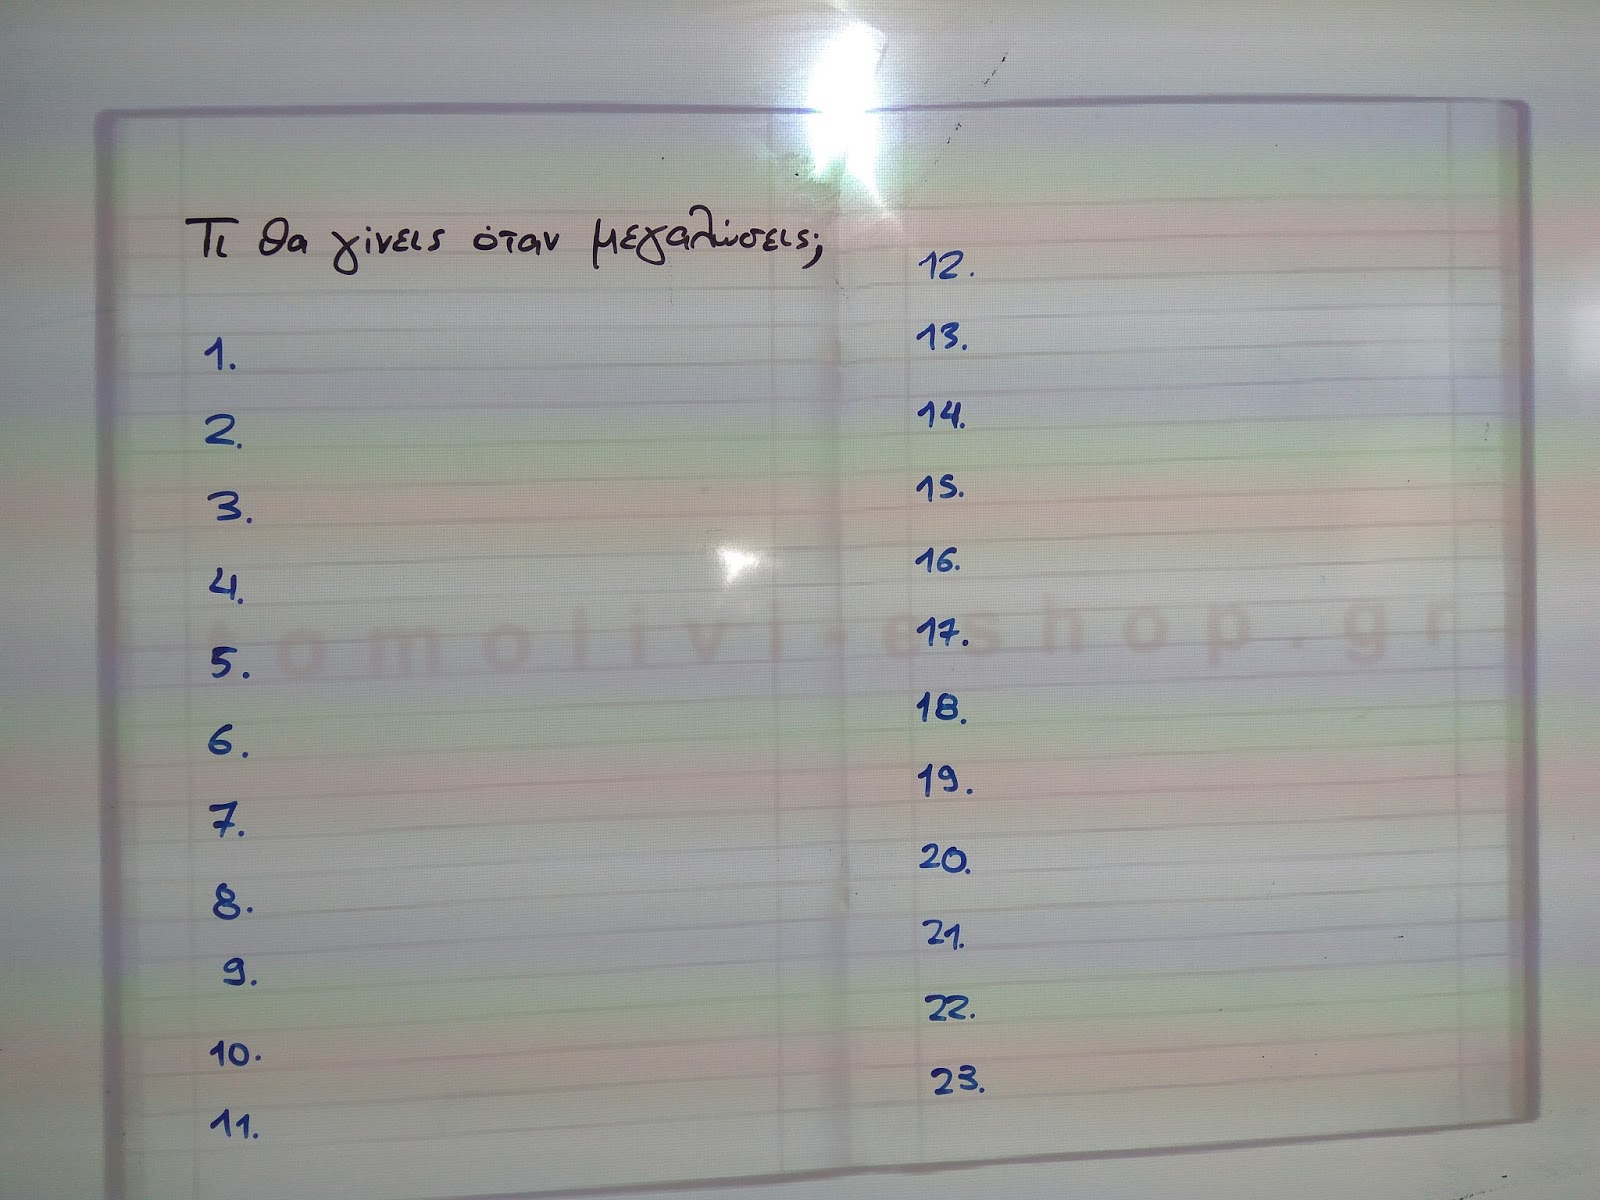 Τι θα γίνεις όταν μεγαλώσεις;
1.
2.
3.
4.
5.
6.
7.
8.
9.
10.
11.
12.
13.
14.
15.
16.
17.
18.
19.
20.
21.
22.
23.
tomolivi-eshop.gr